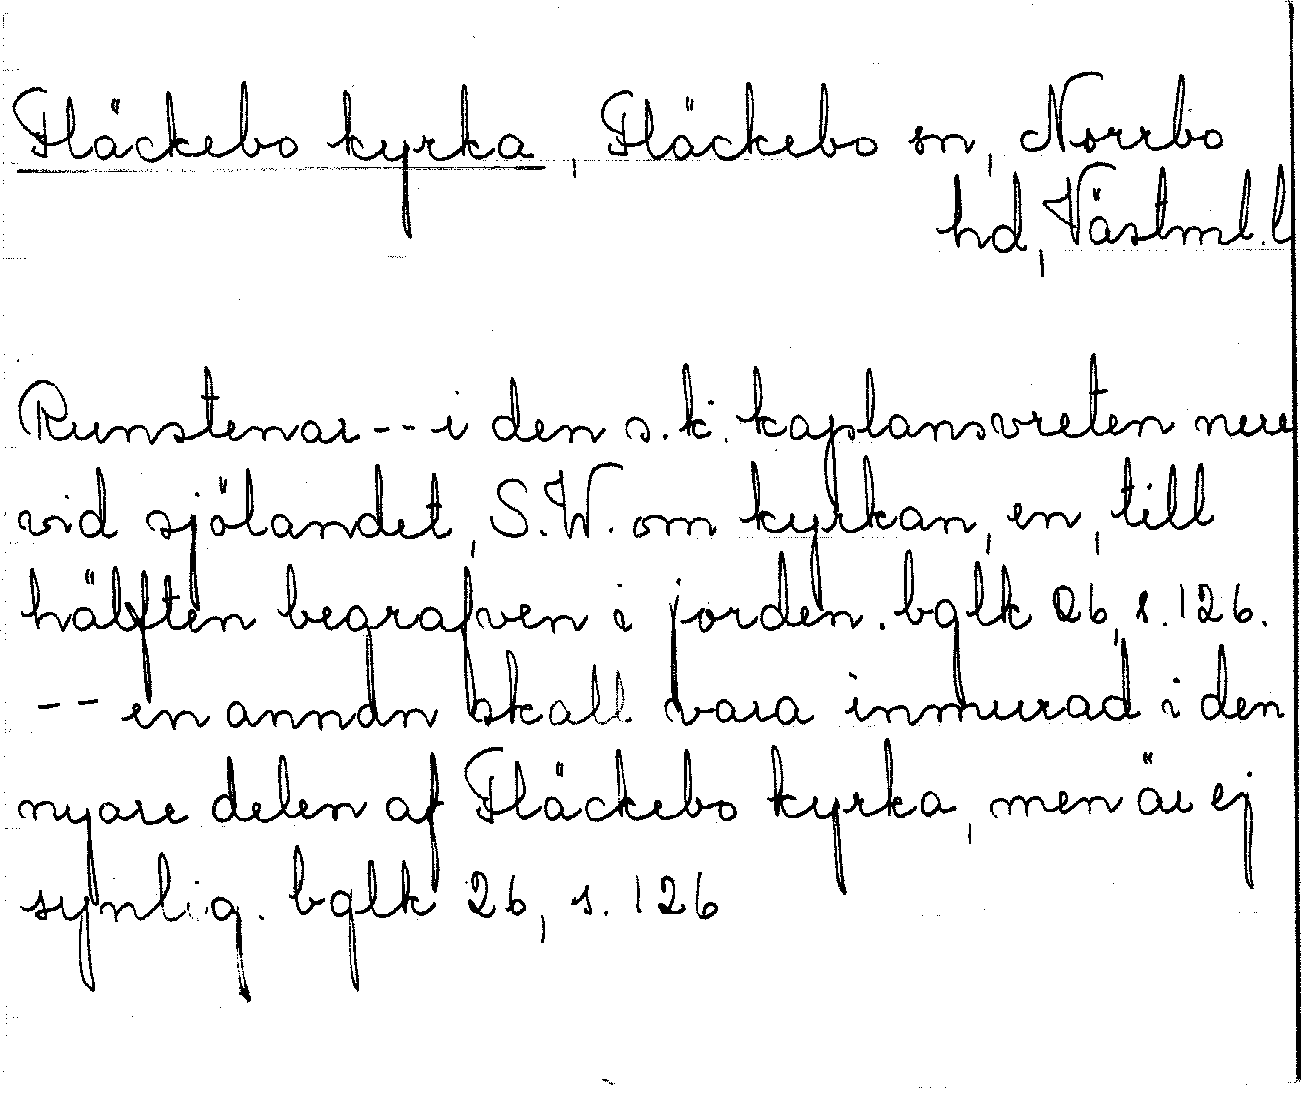 Fläckebo kyrka, Fläckebo sn, Norrbo
hd, Västml. l
Runstenar -- i den s.k. kaplansvreten nere
vid sjölandet, S.W. om kyrkan, en, till
hälften begrafven i jorden. bglk 26, s. 126.
-- en annan skall vara inmurad i den
nyare delen af Fläckebo kyrka, men är ej
synlig. bglk 26, s. 126